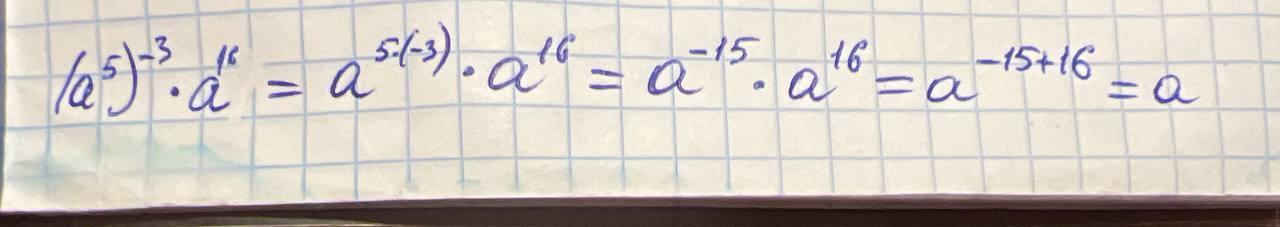 (a⁵)⁻³ · a¹⁶ = a⁵·⁽⁻³⁾ · a¹⁶ = a⁻¹⁵ · a¹⁶ = a⁻¹⁵⁺¹⁶ = a